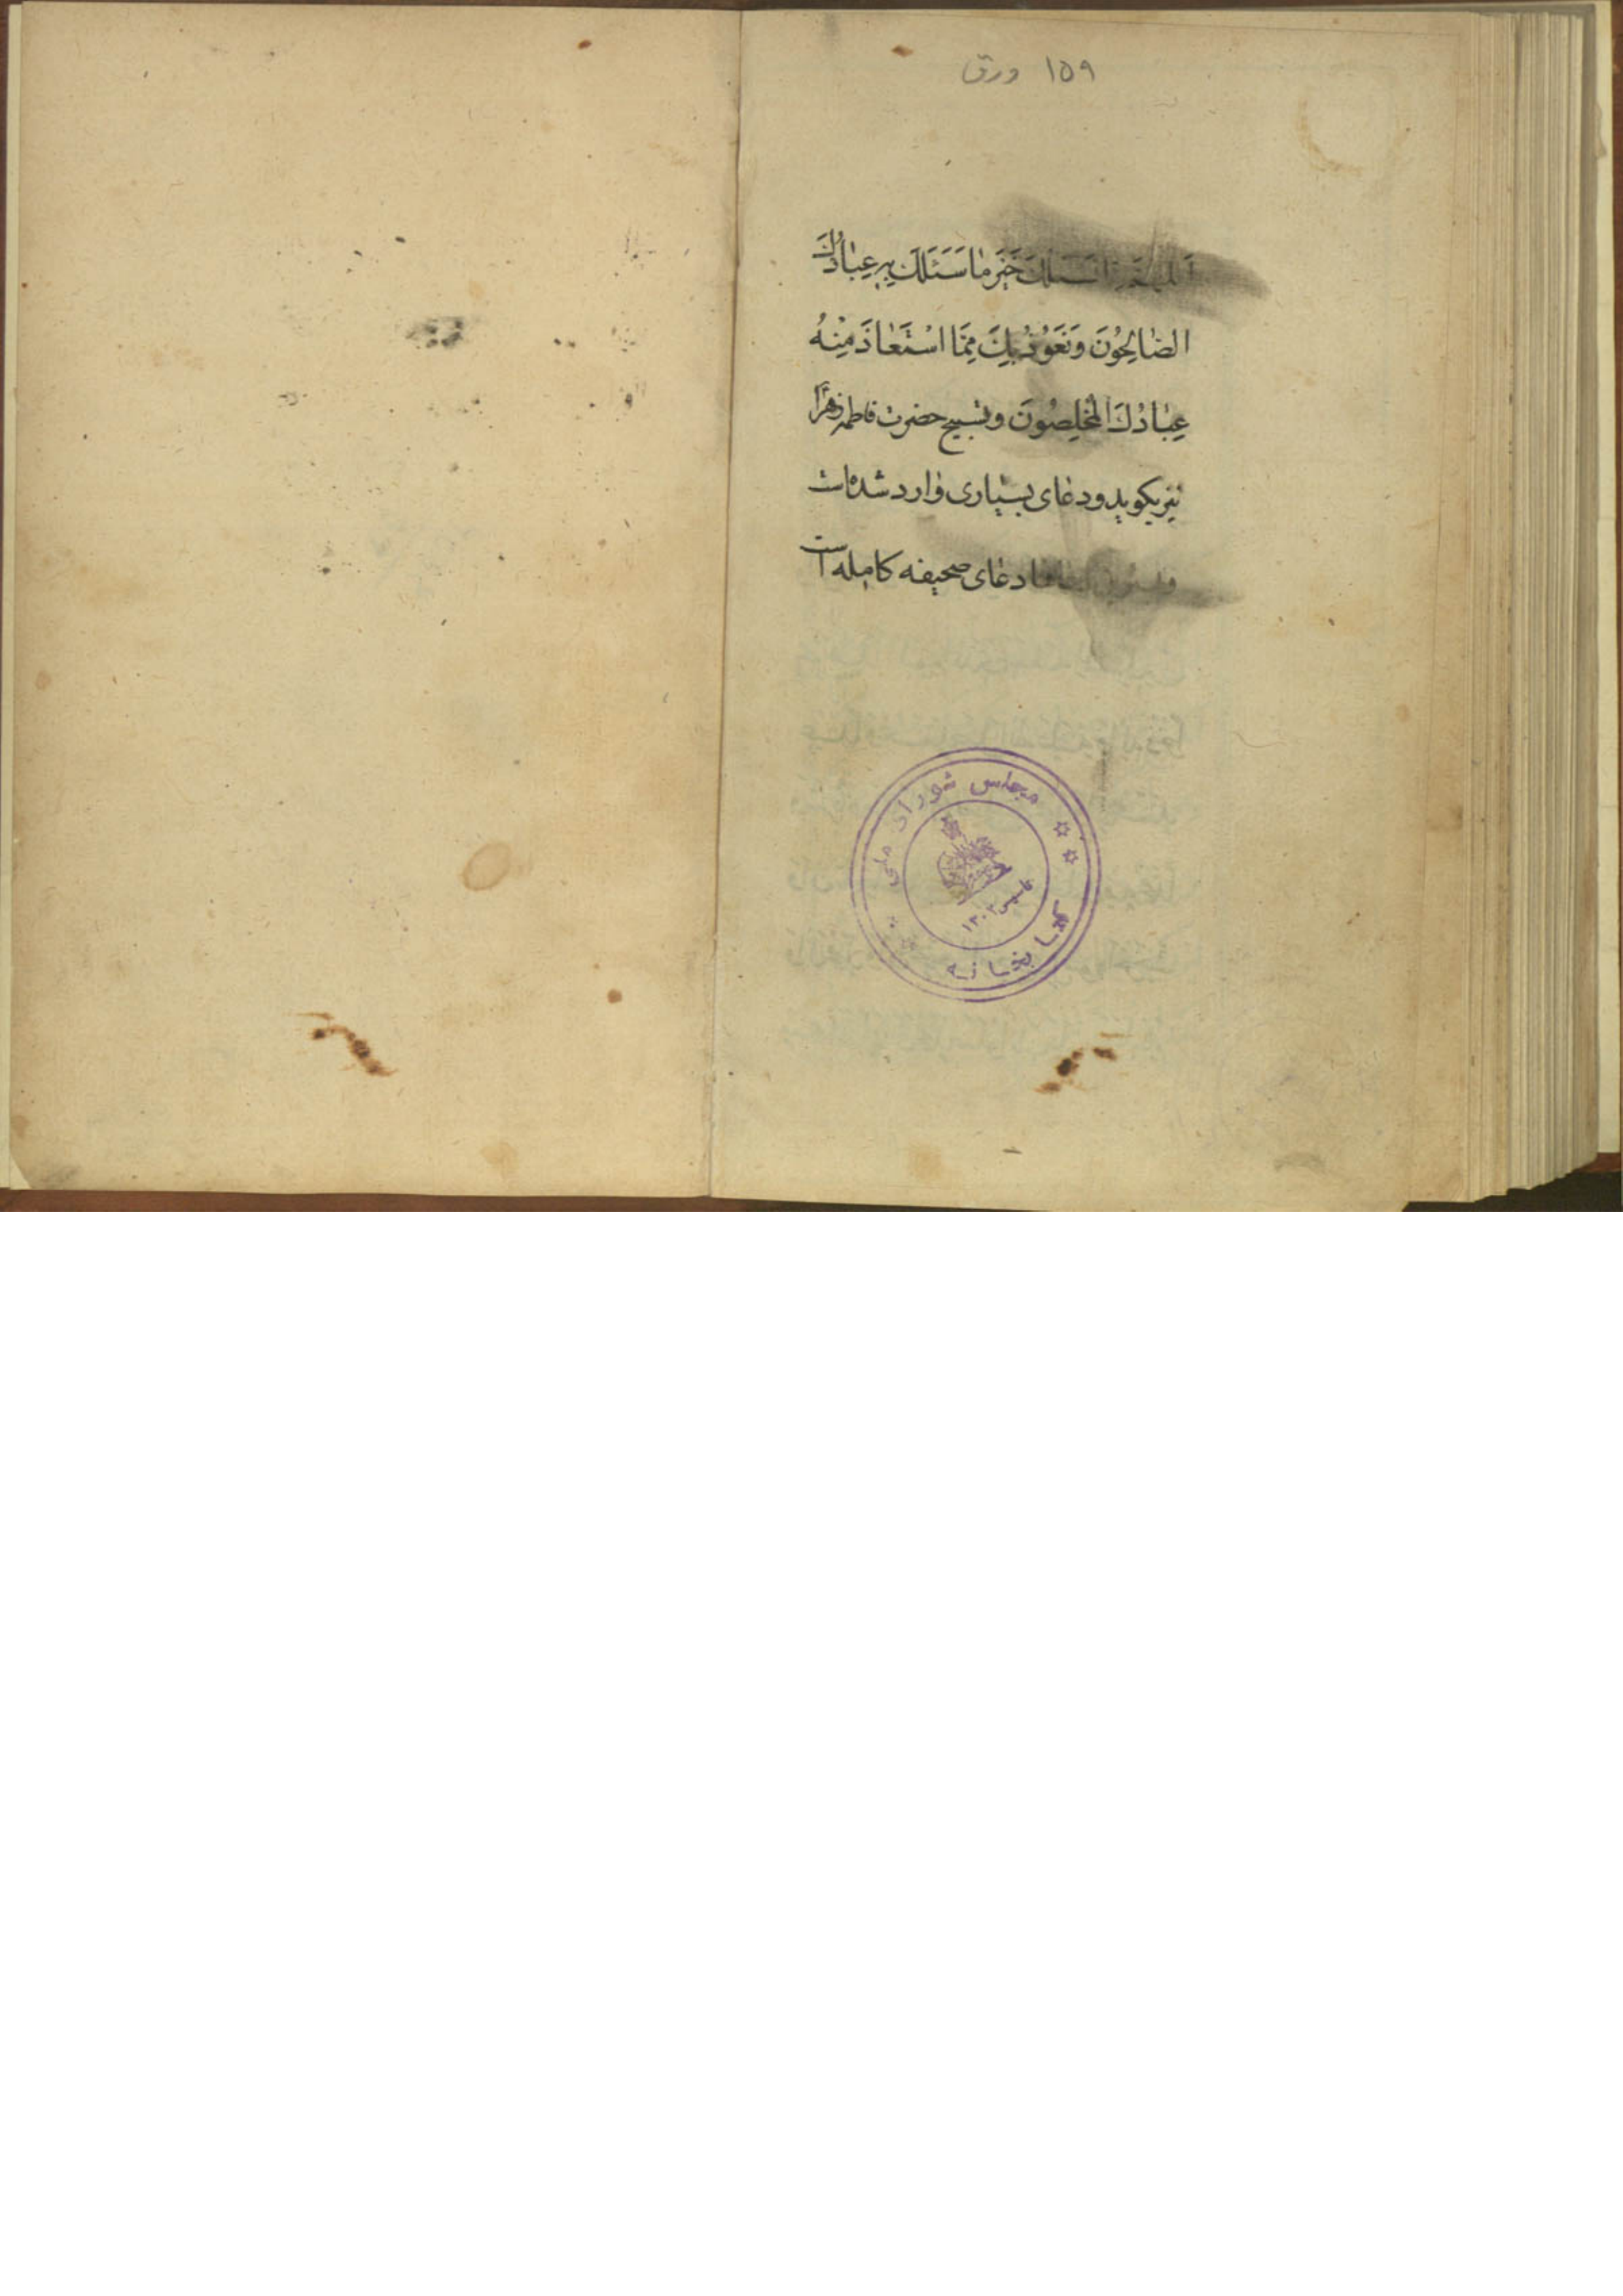 ۱۵۹ ورق
اَللّهُمَّ اِنّا نَسْئَلُكَ خَیْرَ مٰا سَئَلَكَ بِهِ عِبٰادُكَ
الصّٰالِحُونَ وَنَعُوذُ بِكَ مِمَّا اسْتَعٰاذَ مِنْهُ
عِبٰادُكَ الْمُخْلِصُونَ و تسبیح حضرت فاطمه زهرا
نیز بکوید و دعای بسیاری وارد شده است
دعای صحیفه کامله است
مجلس شورای ملی
کتابخانه
تاسیس ۱۳۰۲